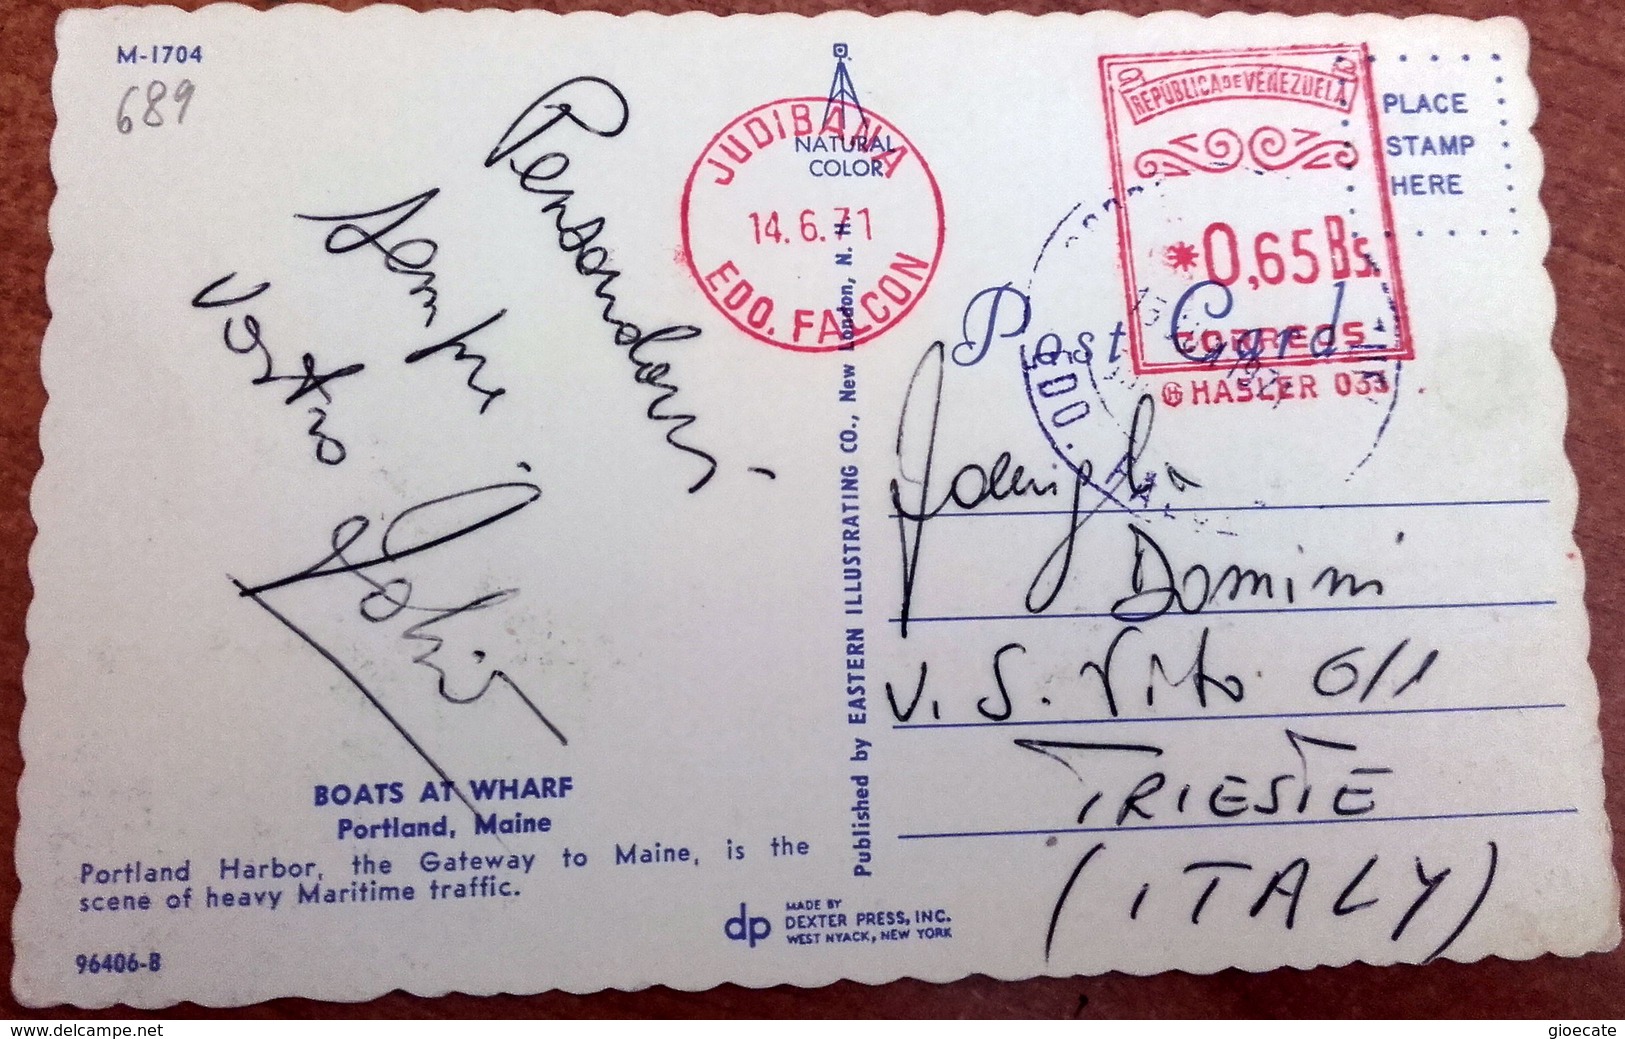 M-1704
689
Pensandovi
sempre
vostro
NATURAL
COLOR
JUDIBANA
14.6.71
EDO. FALCON
REPÚBLICA DE VENEZUELA
*0,65 Bs.
CORREOS
HASLER 033
PLACE
STAMP
HERE
Post Card
EDO.
Published by EASTERN ILLUSTRATING CO., New London, N. H.
Famiglia
Domini
V. S. Vito 6/1
TRIESTE
(ITALY)
BOATS AT WHARF
Portland, Maine
Portland Harbor, the Gateway to Maine, is the
scene of heavy Maritime traffic.
dp
MADE BY
DEXTER PRESS, INC.
WEST NYACK, NEW YORK
96406-B
www.delcampe.net
gioecate